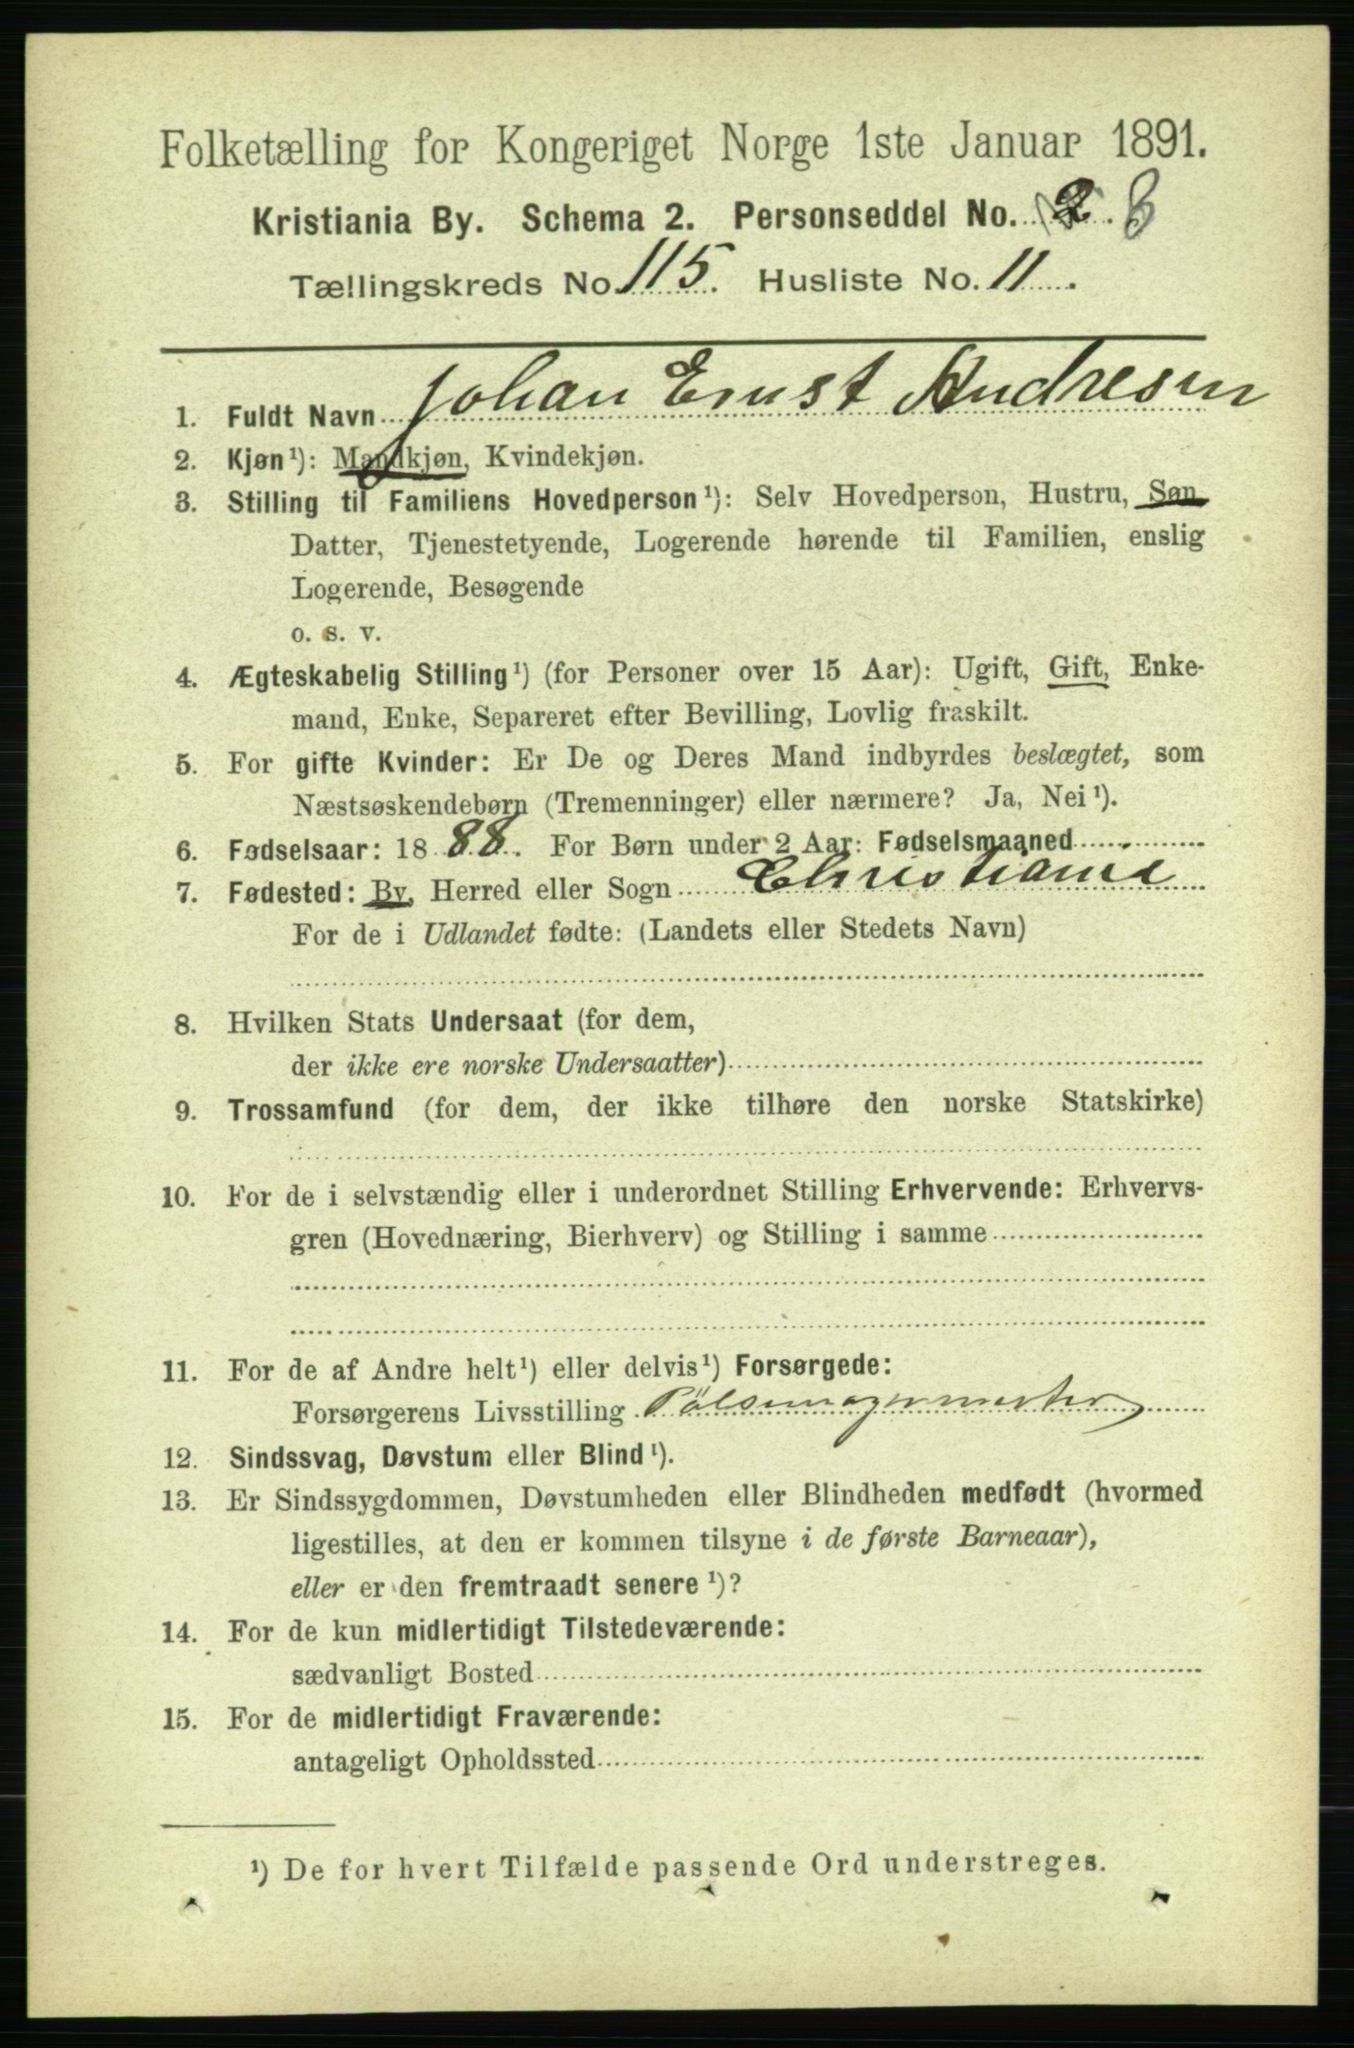 Folketælling for Kongeriget Norge 1ste Januar 1891.
Kristiania By. Schema 2. Personseddel No. 2. 8
Tællingskreds No 115. Husliste No. 11.
1. Fuldt Navn Johan Ernst Andresen
2. Kjøn¹): Mandkjøn, Kvindekjøn.
3. Stilling til Familiens Hovedperson¹): Selv Hovedperson, Hustru, Søn
Datter, Tjenestetyende, Logerende hørende til Familien, enslig
Logerende, Besøgende
o. s. v.
4. Ægteskabelig Stilling¹) (for Personer over 15 Aar): Ugift, Gift, Enke-
mand, Enke, Separeret efter Bevilling, Lovlig fraskilt.
5. For gifte Kvinder: Er De og Deres Mand indbyrdes beslægtet, som
Næstsøskendebørn (Tremenninger) eller nærmere? Ja, Nei¹).
6. Fødselsaar: 1888. For Børn under 2 Aar: Fødselsmaaned
7. Fødested: By, Herred eller Sogn Christiania
For de i Udlandet fødte: (Landets eller Stedets Navn)
8. Hvilken Stats Undersaat (for dem,
der ikke ere norske Undersaatter)
9. Trossamfund (for dem, der ikke tilhøre den norske Statskirke)
10. For de i selvstændig eller i underordnet Stilling Erhvervende: Erhvervs-
gren (Hovednæring, Bierhverv) og Stilling i samme
11. For de af Andre helt¹) eller delvis¹) Forsørgede:
Forsørgerens Livsstilling Pölsemagermester
12. Sindssvag, Døvstum eller Blind¹).
13. Er Sindssygdommen, Døvstumheden eller Blindheden medfødt (hvormed
ligestilles, at den er kommen tilsyne i de første Barneaar),
eller er den fremtraadt senere¹)?
14. For de kun midlertidigt Tilstedeværende:
sædvanligt Bosted
15. For de midlertidigt Fraværende:
antageligt Opholdssted
¹) De for hvert Tilfælde passende Ord understreges.